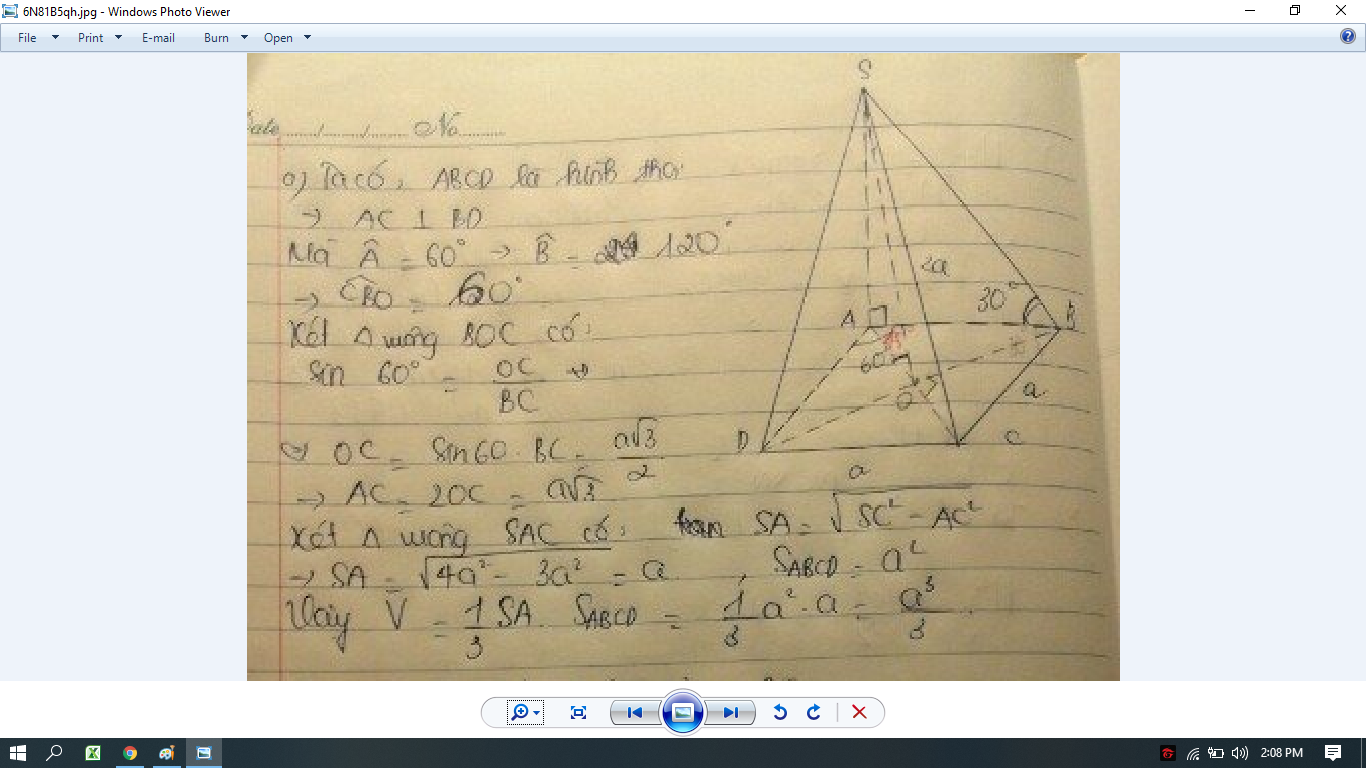 6N81B5qh.jpg - Windows Photo Viewer
File Print E-mail Burn Open
Date ....../....../...... No..........
a) Ta có, ABCD là hình thoi
→ AC ⊥ BD
Mà Â = 60° → B̂ = 120°
→ CBO = 60°
Xét Δ vuông BOC có:
sin 60° = OC/BC
OC = sin60 . BC = a√3/2
→ AC = 2OC = a√3
Xét Δ vuông SAC có: SA = √SC² - AC²
→ SA = √4a² - 3a² = a , SABCD = a²
Vậy V = 1/3 SA . SABCD = 1/3 a² . a = a³/3 .
S
2a
A
30°
B
60
O
a
D
C
a
2:08 PM